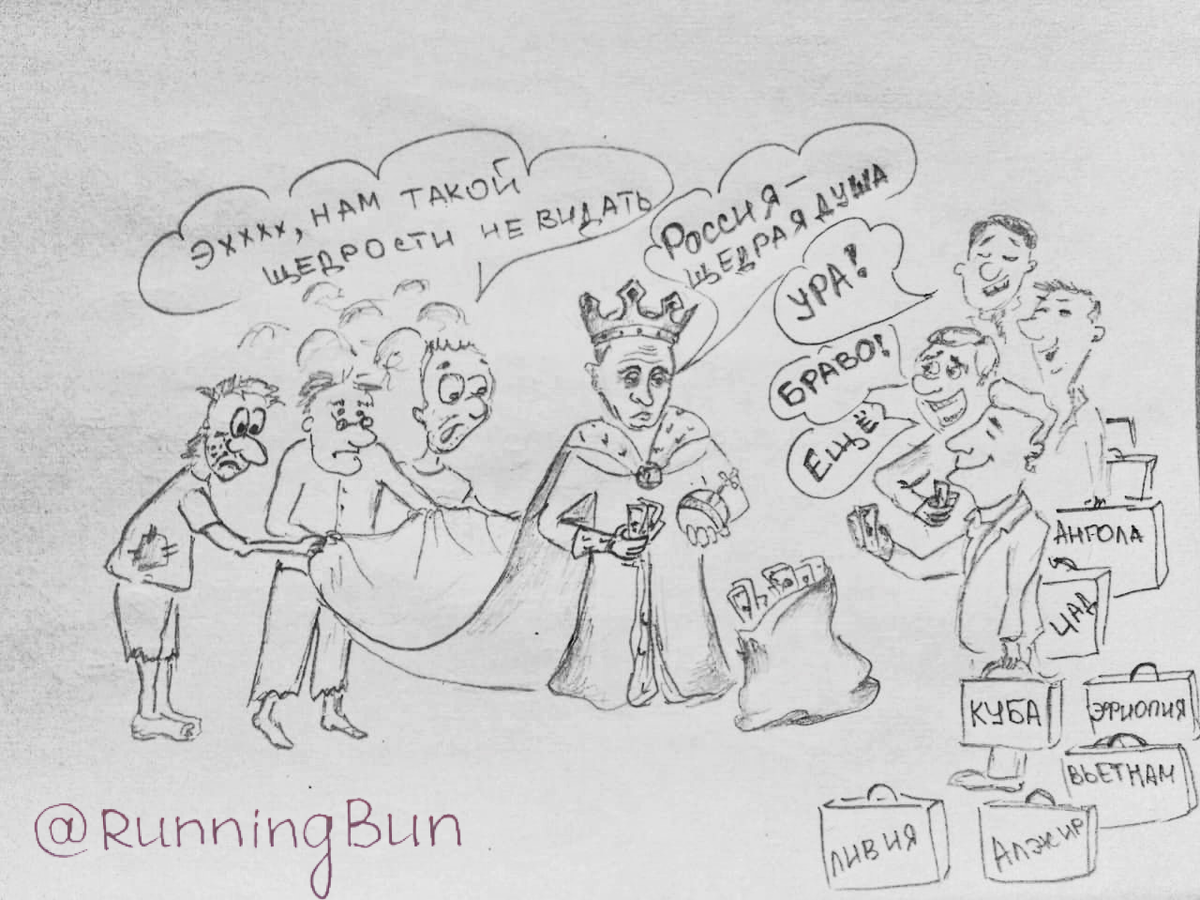 Эхххх, НАМ ТАКОЙ
ЩЕДРОСТИ НЕ ВИДАТЬ
РОССИЯ -
ЩЕДРАЯ ДУША
УРА!
БРАВО!
ЕЩЁ
АНГОЛА
ЦАД
КУБА
ЭФИОПИЯ
ВЬЕТНАМ
ЛИВИЯ
АЛЖИР
@RunningBun